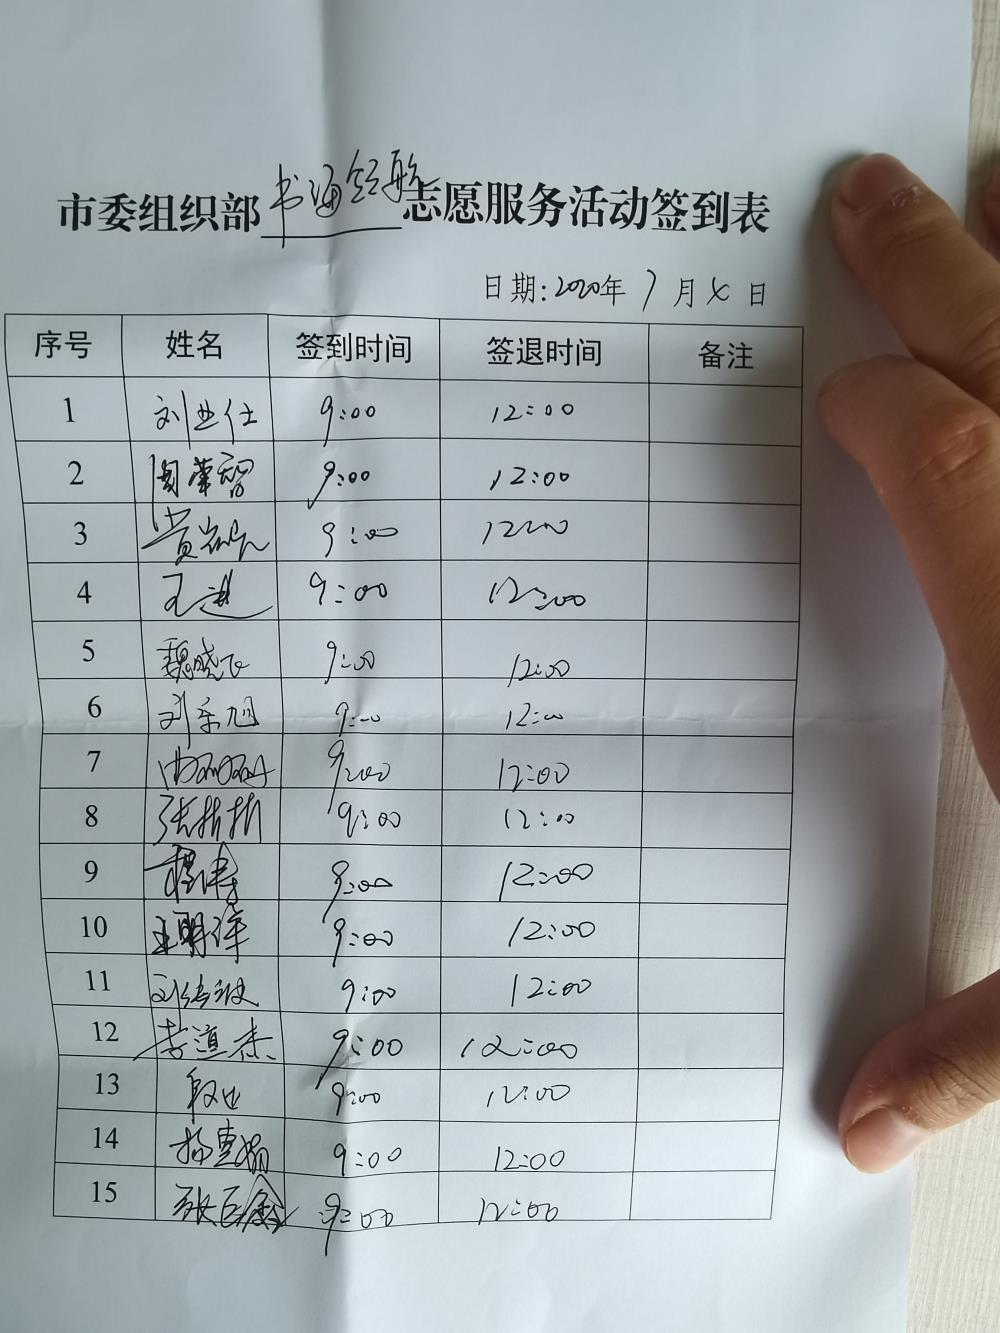 市委组织部书海领航志愿服务活动签到表
日期:2020年7月4日
序号 姓名 签到时间 签退时间 备注
1 刘业仕 9:00 12:00
2 周荣智 9:00 12:00
3 黄 9:00 12:00
4 王进 9:00 12:00
5 魏晓飞 9:00 12:00
6 刘东旭 9:00 12:00
7 9:00 12:00
8 张彬彬 9:00 12:00
9 程涛 9:00 12:00
10 王明洋 9:00 12:00
11 刘 9:00 12:00
12 李道杰 9:00 12:00
13 9:00 12:00
14 杨惠娟 9:00 12:00
15 张巨鑫 9:00 12:00